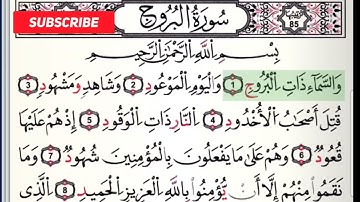 SUBSCRIBE
سُورَةُ الْبُرُوجِ
85
بِسْمِ اللَّهِ الرَّحْمَٰنِ الرَّحِيمِ
وَالسَّمَآءِ ذَاتِ الْبُرُوجِ 1 وَالْيَوْمِ الْمَوْعُودِ 2 وَشَاهِدٍ وَمَشْهُودٍ 3
قُتِلَ أَصْحَٰبُ الْأُخْدُودِ 4 النَّارِ ذَاتِ الْوَقُودِ 5 إِذْ هُمْ عَلَيْهَا
قُعُودٌ 6 وَهُمْ عَلَىٰ مَا يَفْعَلُونَ بِالْمُؤْمِنِينَ شُهُودٌ 7 وَمَا
نَقَمُوا مِنْهُمْ إِلَّا أَن يُؤْمِنُوا بِاللَّهِ الْعَزِيزِ الْحَمِيدِ 8 الَّذِي